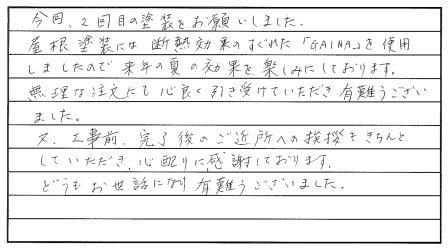 今回、2回目の塗装をお願いしました。
屋根塗装には断熱効果のすぐれた「GAINA」を使用
しましたので来年の夏の効果を楽しみにしております。
無理な注文にも心良く引き受けていただき有難うござい
ました。
又、工事前、完了後のご近所への挨拶をきちんと
していただき、心配りに感謝しております。
どうもお世話になり有難うございました。